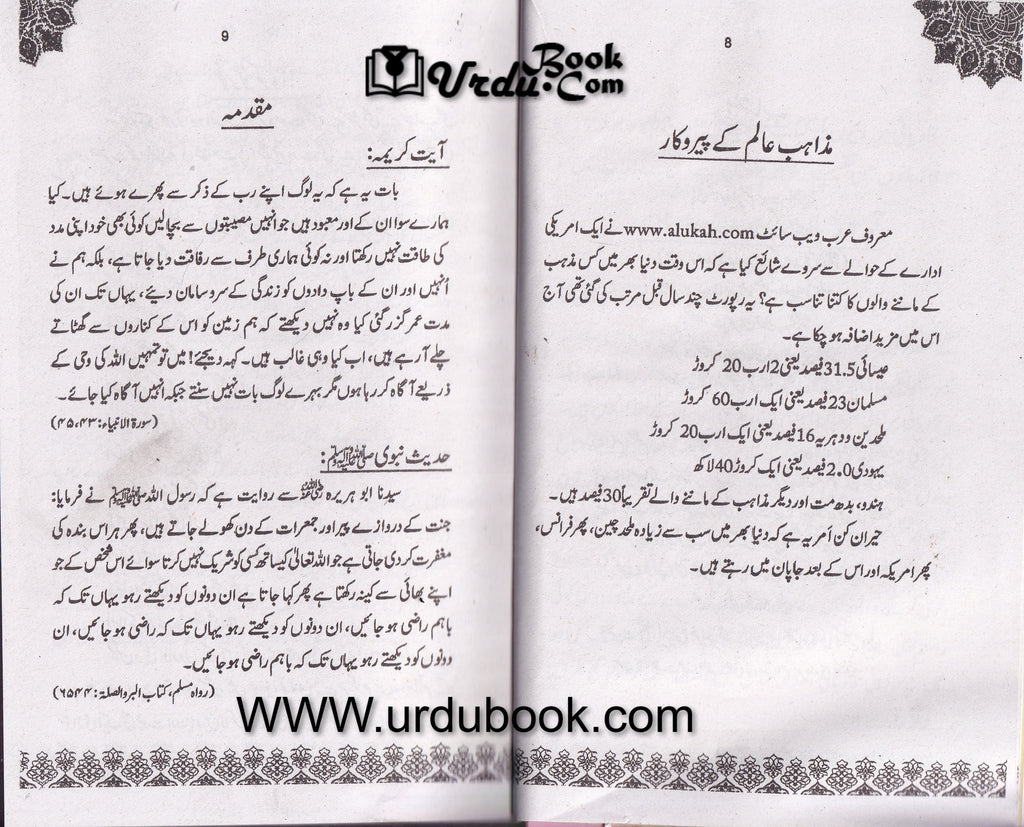 8
مذاہب عالم کے پیروکار
معروف عرب ویب سائٹ www.alukah.com نے ایک امریکی
ادارے کے حوالے سے سروے شائع کیا ہے کہ اس وقت دنیا بھر میں کس مذہب
کے ماننے والوں کا کتنا تناسب ہے؟ یہ رپورٹ چند سال قبل مرتب کی گئی تھی آج
اس میں مزید اضافہ ہو چکا ہے۔
عیسائی 31.5 فیصد یعنی 2 ارب 20 کروڑ
مسلمان 23 فیصد یعنی ایک ارب 60 کروڑ
ملحدین و دہریہ 16 فیصد یعنی ایک ارب 20 کروڑ
یہودی 2.0 فیصد یعنی ایک کروڑ 40 لاکھ
ہندو، بدھ مت اور دیگر مذاہب کے ماننے والے تقریباً 30 فیصد ہیں۔
حیران کن اَمر یہ ہے کہ دنیا بھر میں سب سے زیادہ ملحد چین، پھر فرانس،
پھر امریکہ اور اس کے بعد جاپان میں رہتے ہیں۔
9
مقدمہ
آیت کریمہ:
بات یہ ہے کہ یہ لوگ اپنے رب کے ذکر سے پھرے ہوئے ہیں۔ کیا
ہمارے سوا ان کے اور معبود ہیں جو انہیں مصیبتوں سے بچا لیں کوئی بھی خود اپنی مدد
کی طاقت نہیں رکھتا اور نہ کوئی ہماری طرف سے رفاقت دیا جاتا ہے، بلکہ ہم نے
اُنہیں اور ان کے باپ دادوں کو زندگی کے سروسامان دیئے، یہاں تک ان کی
مدت عمر گزر گئی کیا وہ نہیں دیکھتے کہ ہم زمین کو اس کے کناروں سے گھٹاتے
چلے آ رہے ہیں، اب کیا وہی غالب ہیں۔ کہہ دیجئے! میں تو تمہیں اللہ کی وحی کے
ذریعے آگاہ کر رہا ہوں مگر بہرے لوگ بات نہیں سنتے جبکہ انہیں آگاہ کیا جائے۔
(سورۃ الانبیاء: ۴۳، ۴۵)
حدیث نبوی ﷺ:
سیدنا ابو ہریرہ رضی اللہ عنہ سے روایت ہے کہ رسول اللہ ﷺ نے فرمایا:
جنت کے دروازے پیر اور جمعرات کے دن کھولے جاتے ہیں، پھر ہر اس بندہ کی
مغفرت کر دی جاتی ہے جو اللہ تعالیٰ کیساتھ کسی کو شریک نہیں کرتا سوائے اس شخص کے جو
اپنے بھائی سے کینہ رکھتا ہے پھر کہا جاتا ہے ان دونوں کو دیکھتے رہو یہاں تک کہ
باہم راضی ہو جائیں، ان دونوں کو دیکھتے رہو یہاں تک کہ راضی ہو جائیں، ان
دونوں کو دیکھتے رہو یہاں تک کہ باہم راضی ہو جائیں۔
(رواہ مسلم، کتاب البر والصلۃ: ۶۵۴۴)
Urdu Book.Com
WWW.urdubook.com